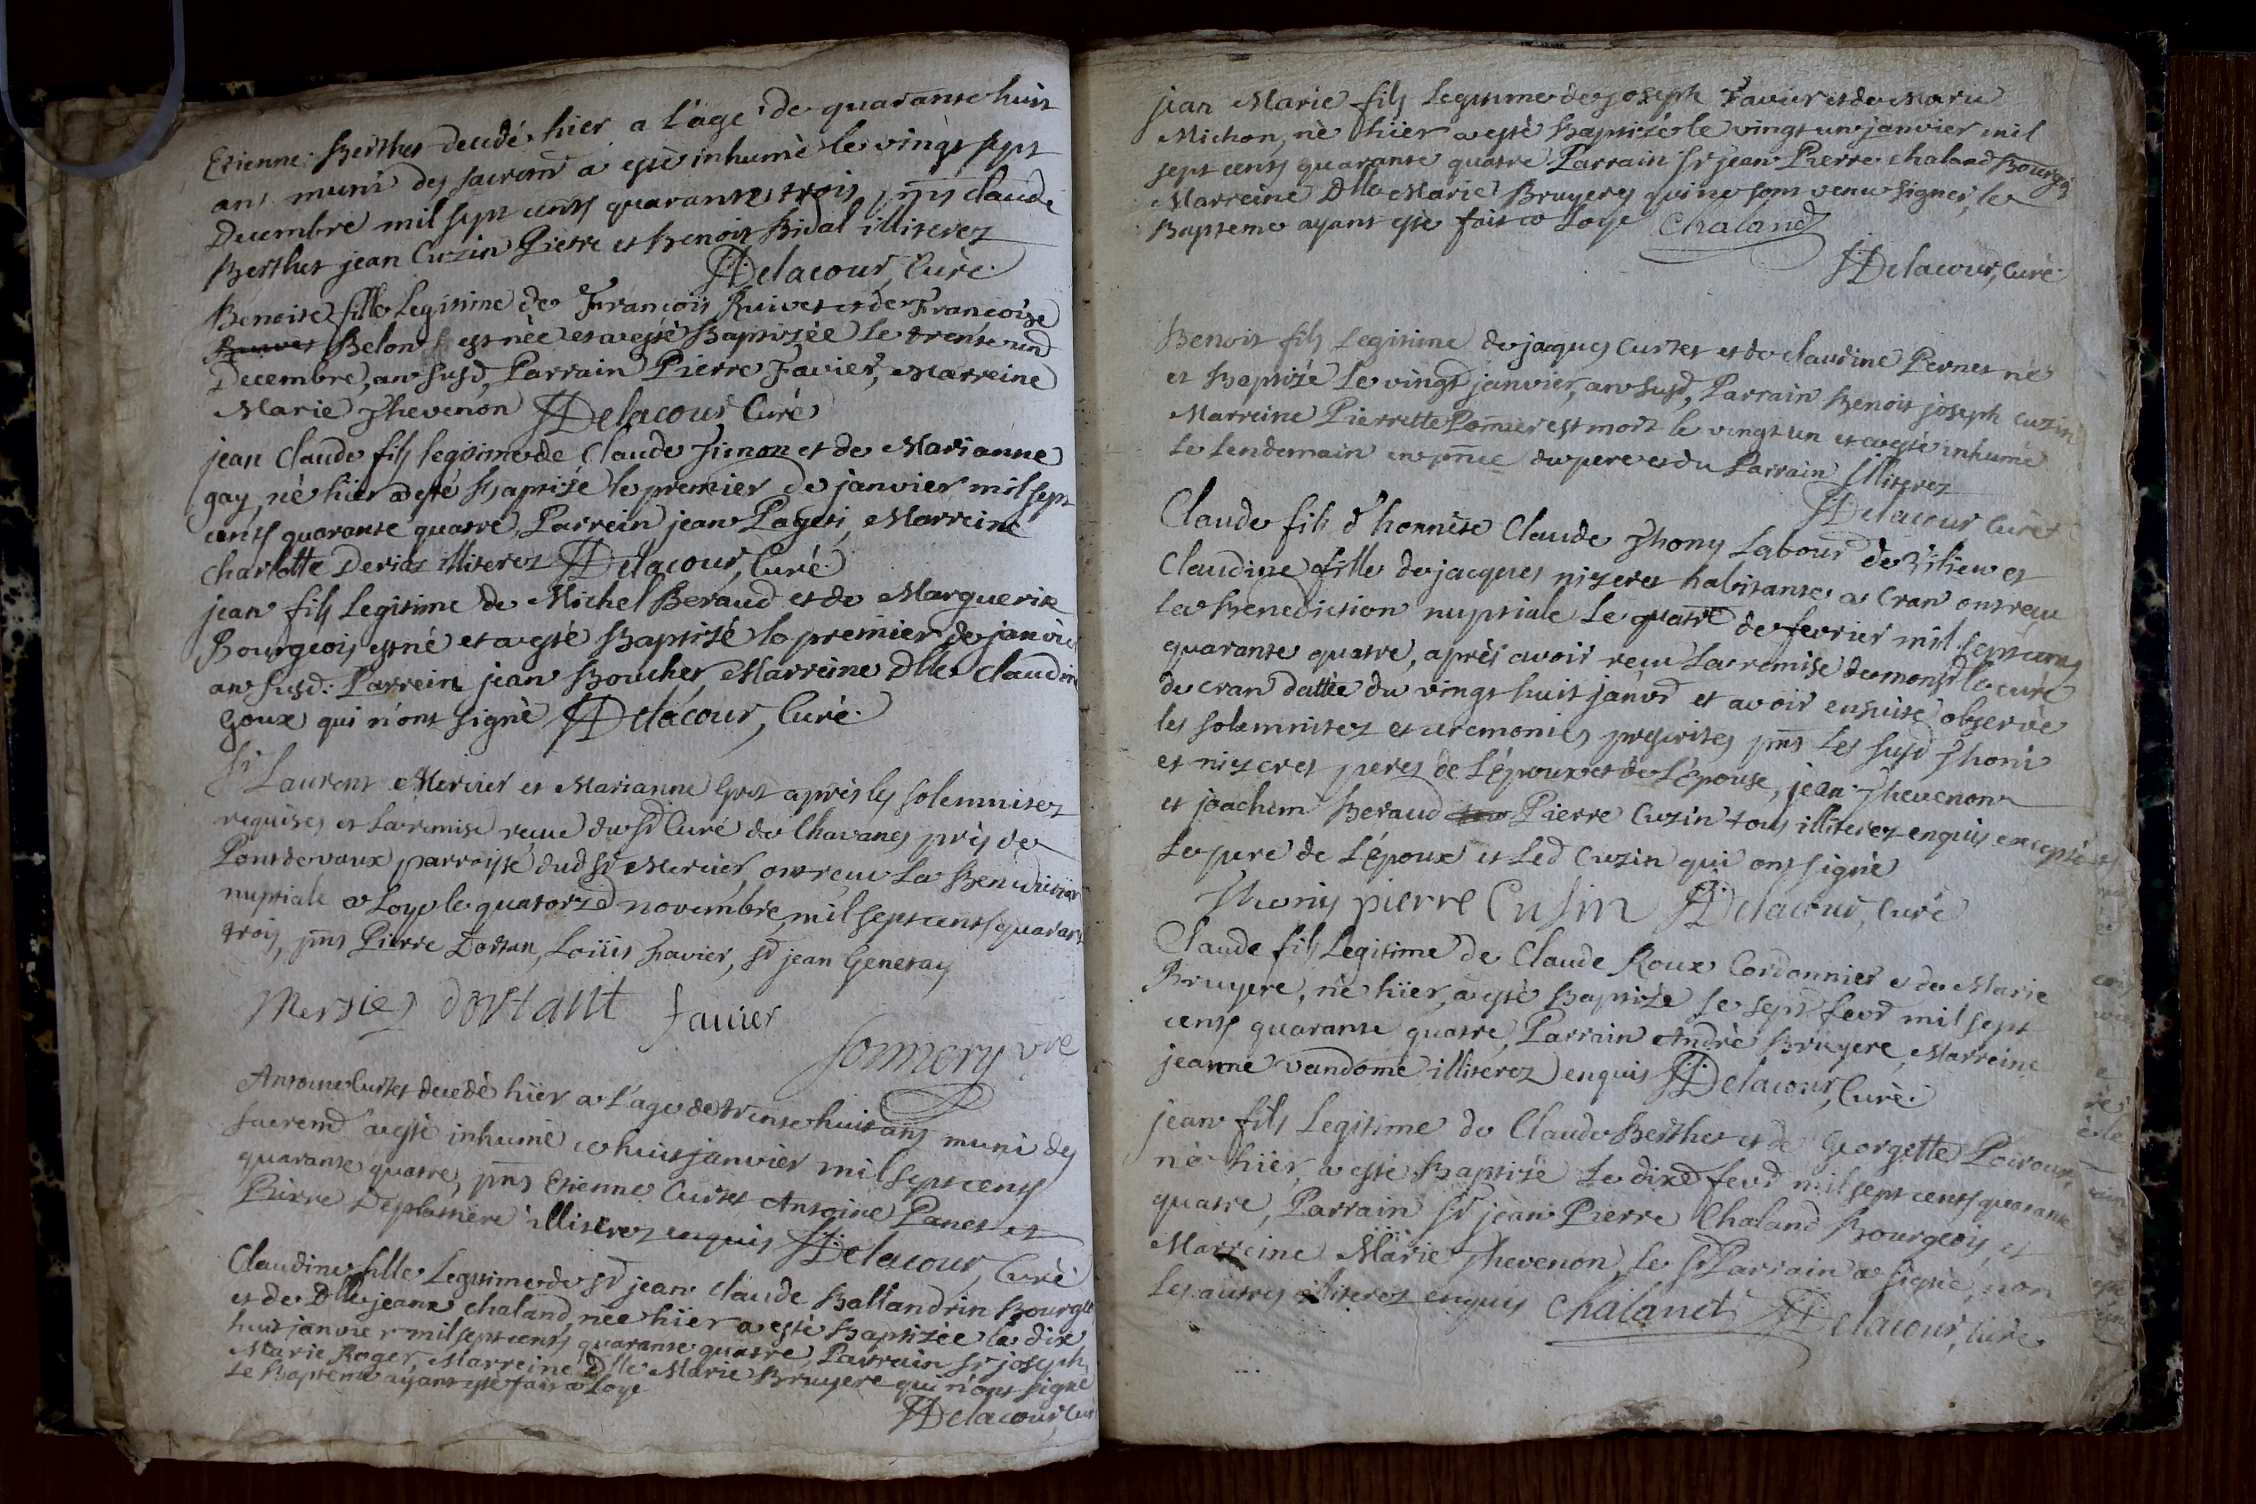 Etienne Berthet decedé hier a l'age de quarante huit
ans muni des sacremd a esté inhumè le vingt sept
Decembre mil sept cents quarante trois, pnts claude
Berthet jean Cuzin Pierre et Benoit Bidal illiterez
Delacour, Curé.
Benoite fille Legitime de François Ruivet et de Françoise
Belon est nèe et a esté Baptizèe le trente un
Decembre, an susd, Parrain Pierre Favier, Marreine
Marie Thevenon Delacour Curé
jean Claude fils legitime de Claude Simon et de Marianne
gay, nè hier a esté Baptizé le premier de janvier mil sept
cents quarante quatre, Parrein jean Pageti, Marreine
Charlotte Deriaz illiterez Delacour, Curé.
jean fils Legitime de Michel Beraud et de Marguerite
Bourgeois est né et a esté Baptizé le premier de janvie
an susd. Parrein jean Boucher, Marreine Dlle Claudine
Goux qui n'ont signè Delacour, Curé.
Sr Laurent Mercier et Marianne Grost après les solemnitez
requises et la remise reçue du Sr Curé de Chavanes près de
Pontdevaux parroisse dud Sr Mercier, ont reçu La Benediction
nuptiale a Loye le quatorze novembre mil sept cents quarante
trois, pnts Pierre Dortan, Loüis Favier, Sr jean Generay
Mersier dortant favier
sonnery vre
Antoine Curtet decedè hier a L'age de trente huit ans muni des
sacremd a esté inhumè ce huit janvier mil sept cents
quarante quatre, pnts Etienne Curtet Antoine Panet et
Pierre Deplattiere illiterez enquis Delacour, Curè
Claudine fille Legitime de Sr jean claude Ballandrin Bourgs
et de Dlle jeanne chaland, nèe hier a esté Baptizèe le dix
huit janvier mil sept cents quarante quatre, Parrain Sr joseph
Marie Roger, Marreine Dlle Marie Bruyere qui n'ont signè
Le Bapteme ayant esté fait a Loye
Delacour, Cur
jean Marie fils Legitime de joseph Favier et de Marie
Michon, nè hier a estè Baptizé le vingt un janvier mil
sept cents quarante quatre Parrain Sr jean Pierre chaland Bourgs
Marreine Dlle Marie Bruyeres qui ne sont venu signer, le
Bapteme ayant esté fait a Loye Chaland
Delacour, Curé.
Benoit fils Legitime de jacques Curtet et de claudine Pernet nè
et Baptizé Le vingt janvier, an susd, Parrain Benoit joseph Cuzin
Marreine Pierrette Pomier est mort le vingt un et a esté inhumè
Le Lendemain en pnce du pere et du Parrain Illiterez
Delacour Curé
Claude fils d'honnète Claude Thony Labour de Vilieu et
Claudine fille de jacques nizeret habitante a Cran ont reçu
la Benediction nuptiale Le quatre de fevrier mil sept cents
quarante quatre, après avoir reçu La remise de monsr le curé
de cran dattèe du vingt huit janvd et avoir ensuite observèe
les solemnitez et ceremonies prescrites, pnts Les susd Thoni
et nizeret peres de L'Epoux et de L'Epouse, jean Thevenon
et joachim Beraud Pierre Cuzin tous illiterez enquis excepté
Le pere de L'Epoux et Led Cuzin qui ont signè
Thoniy pierre Cusin Delacour, Curé
Claude fils Legitime de Claude Roux Cordonnier et de Marie
Bruyere, nè hier, a esté Baptizè le sept fevd mil sept
cents quarante quatre, Parrain Andrè Brüyere, Marreine
jeanne vandome illiterez enquis Delacour, Curè.
jean fils Legitime de Claude Berthet et de Georgette Poiroux,
nè hier, a esté Baptizé Le dixe fevd mil sept cents quarante
quatre, Parrain Sr jean Pierre Chaland Bourgeois, et
Marreine Marie Thevenon, Le Sr Parrain a signè, non
Les autres illiterez enquis Chaland Delacour, Curé.